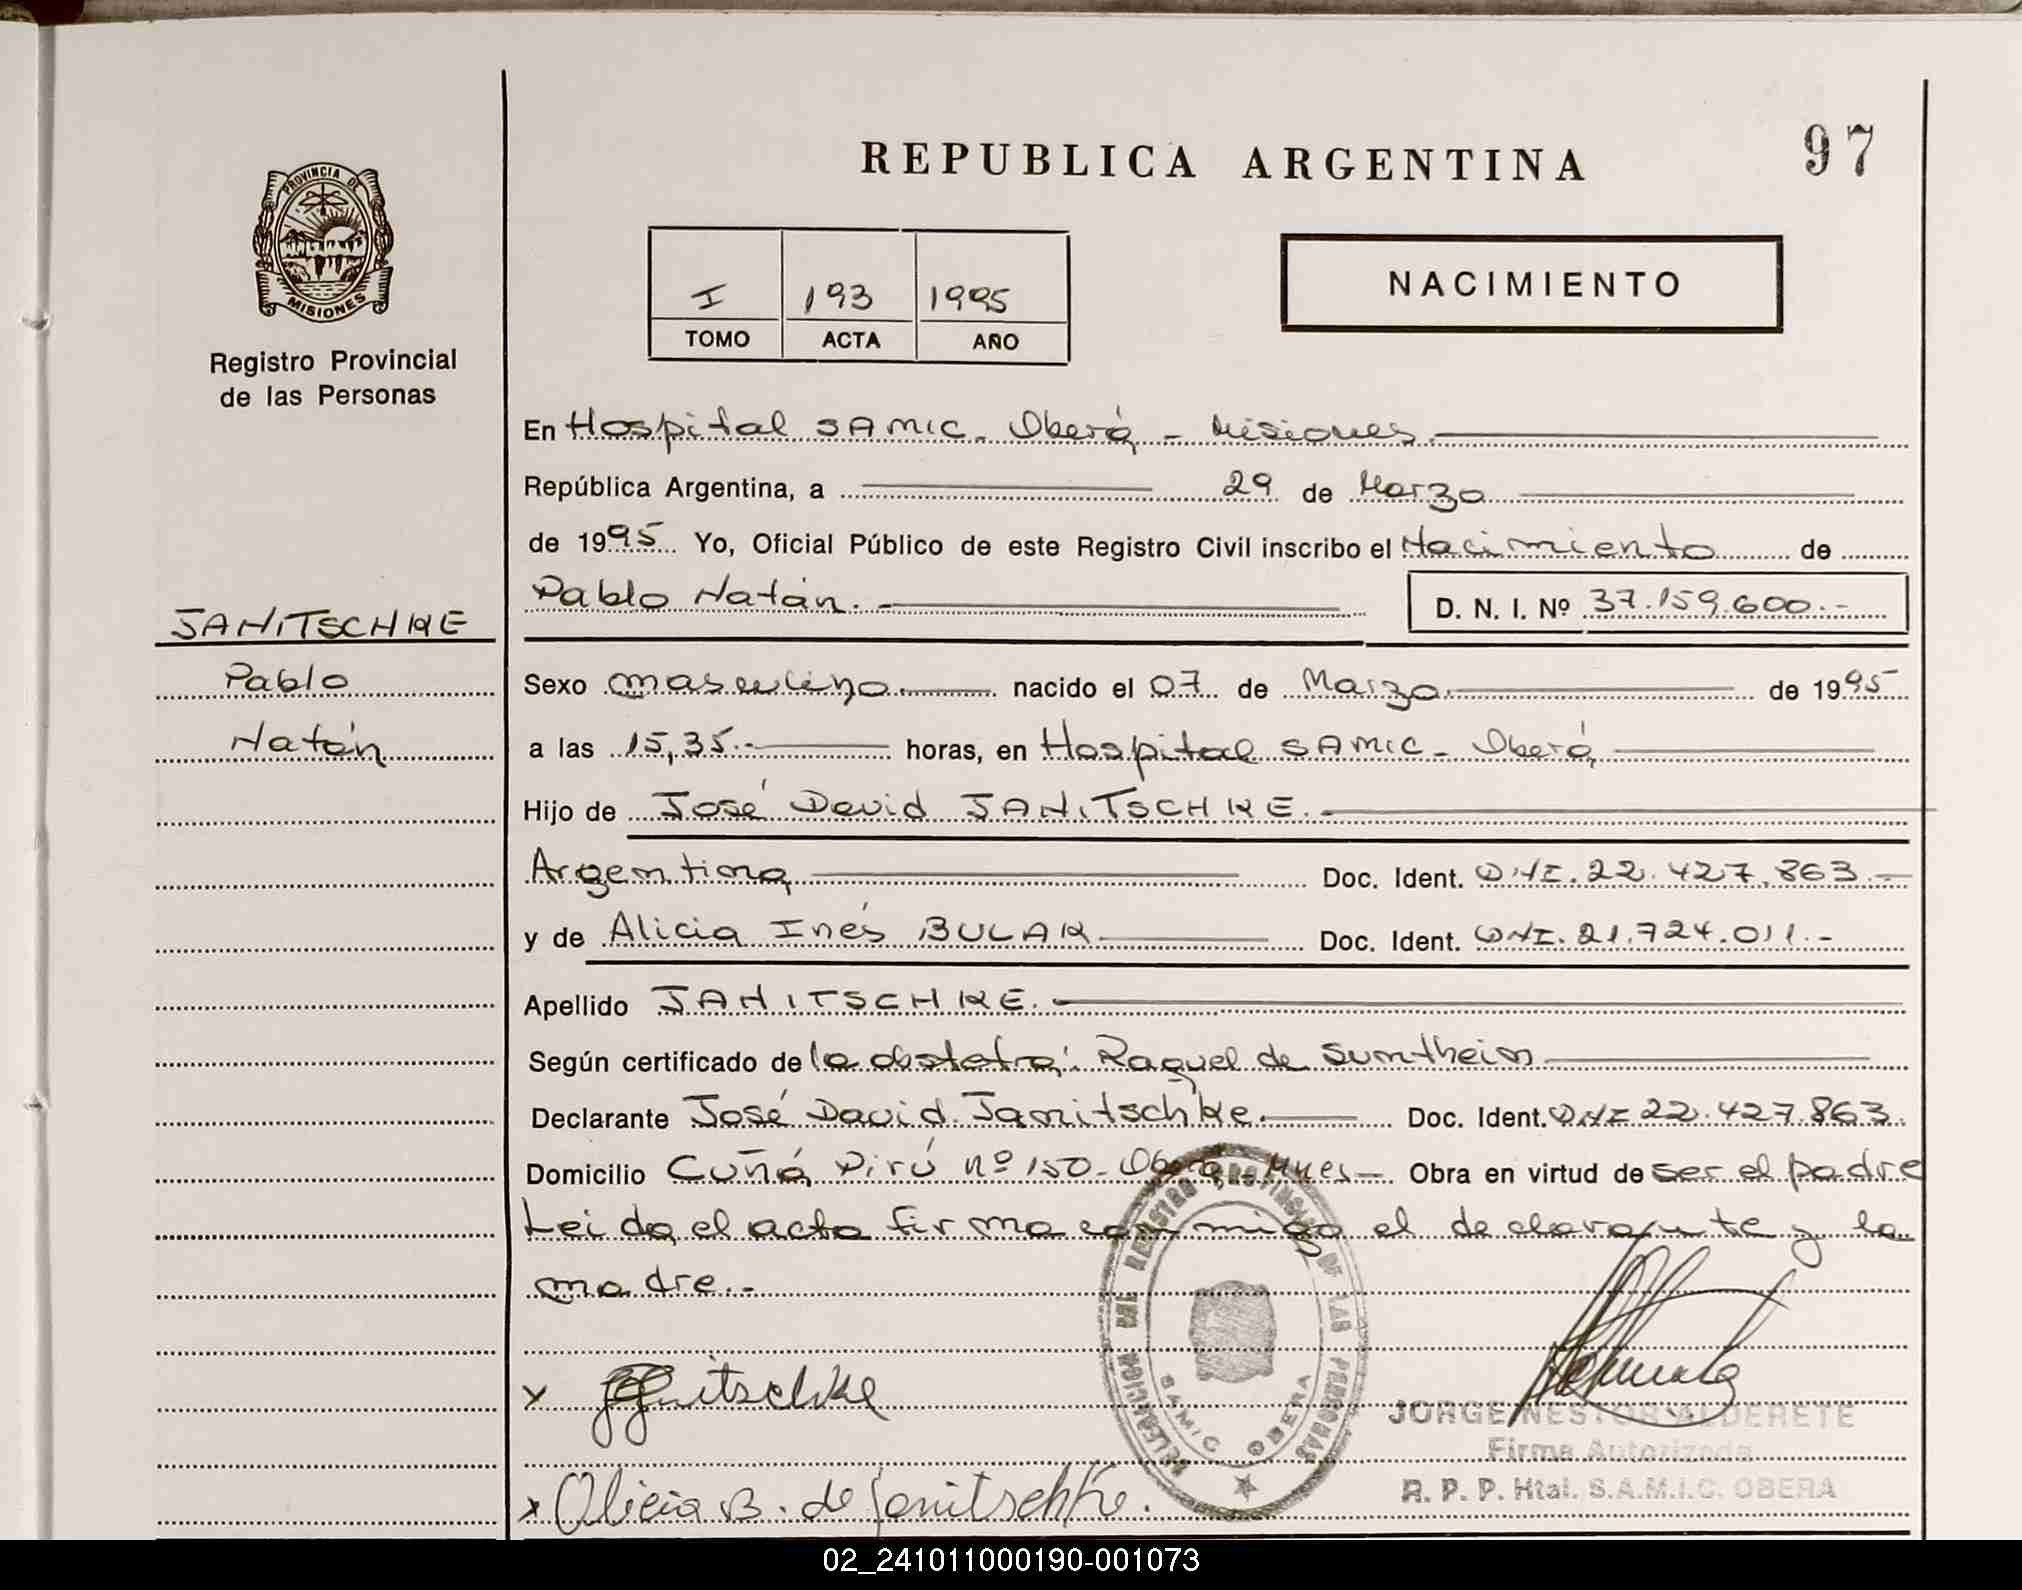 REPUBLICA ARGENTINA
97
PROVINCIA DE
MISIONES
Registro Provincial
de las Personas
I 193 1995
TOMO ACTA AÑO
NACIMIENTO
En Hospital SAMIC - Oberá - Misiones.
República Argentina, a 29 de Marzo
de 1995 Yo, Oficial Público de este Registro Civil inscribo el Nacimiento de
Pablo Natán. - D. N. I. Nº 37.159.600.-
JANITSCHKE
Pablo
Natán
Sexo masculino nacido el 07 de Marzo de 1995
a las 15,35.- horas, en Hospital SAMIC - Oberá
Hijo de José David JANITSCHKE.
Argentina Doc. Ident. DNI. 22.427.863.-
y de Alicia Inés BULAK Doc. Ident. DNI. 21.724.011.-
Apellido JANITSCHKE.
Según certificado de la obstetra: Raquel de
Declarante José David Janitschke. Doc. Ident. DNI 22.427.863.
Domicilio Cuñá Pirú nº 150 - Oberá - Mnes - Obra en virtud de ser el padre
Leida el acta firma conmigo el declarante y la
madre.-
DELEGACION DEL REGISTRO PROVINCIAL DE LAS PERSONAS
SAMIC OBERA
x Janitschke
JORGE NESTOR ALDERETE
Firma Autorizada
R. P. P. Htal. S.A.M.I.C. OBERA
x Alicia B. de Janitschke.
02_241011000190-001073